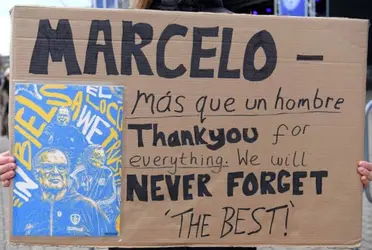 MARCELO —
Más que un hombre
Thankyou for
everything. We will
NEVER FORGET
'THE BEST!'
EL LOCO
IN BIELSA
WE TRU